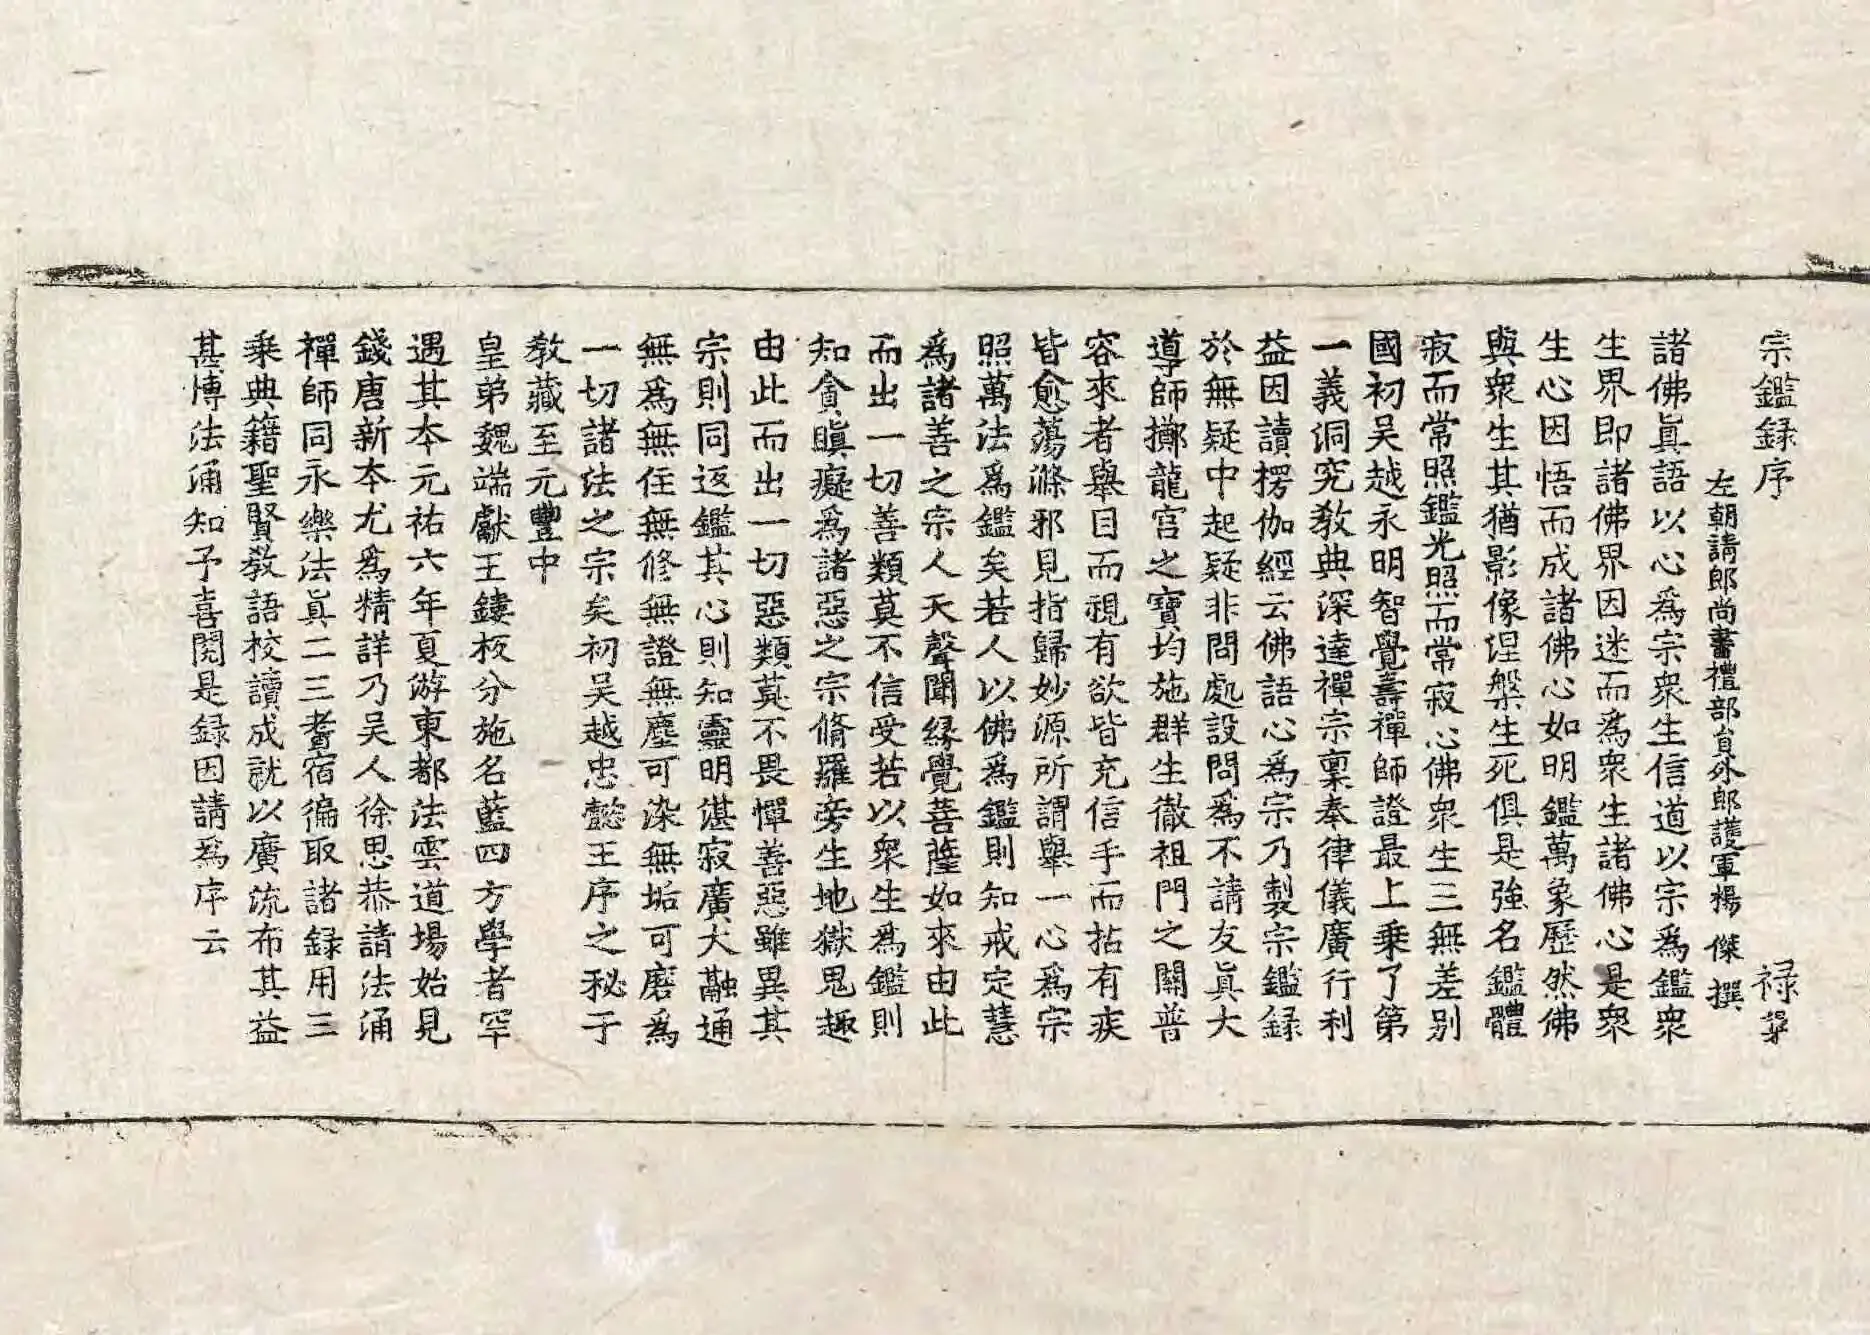 宗鑑録序 禄
左朝請郎尚書禮部貟外郎護軍楊 傑 撰
諸佛眞語以心為宗衆生信道以宗為鑑衆
生界即諸佛界因迷而為衆生諸佛心是衆
生心因悟而成諸佛心如明鑑萬象歷然佛
與衆生其猶影像涅槃生死俱是強名鑑體
寂而常照鑑光照而常寂心佛衆生三無差别
國初吴越永明智覺壽禪師證最上乗了第
一義洞究教典深達禪宗稟奉律儀廣行利
益因讀楞伽經云佛語心為宗乃製宗鑑録
於無疑中起疑非問處設問為不請友眞大
導師擲龍宫之寶均施群生徹祖門之關普
容來者舉目而視有欲皆充信手而拈有疾
皆愈蕩滌邪見指歸妙源所謂舉一心為宗
照萬法為鑑矣若人以佛為鑑則知戒定慧
為諸善之宗人天聲聞縁覺菩薩如來由此
而出一切善類莫不信受若以衆生為鑑則
知貪瞋癡為諸惡之宗脩羅旁生地獄鬼趣
由此而出一切惡類莫不畏憚善惡雖異其
宗則同返鑑其心則知靈明湛寂廣大融通
無為無住無修無證無塵可染無垢可磨為
一切諸法之宗矣初吴越忠懿王序之秘于
教藏至元豐中
皇弟魏端獻王鏤板分施名藍四方學者罕
遇其本元祐六年夏游東都法雲道場始見
錢唐新本尤為精詳乃吴人徐思恭請法涌
禪師同永樂法眞二三耆宿徧取諸録用三
乗典籍聖賢教語校讀成就以廣流布其益
甚博法涌知予喜閱是録因請為序云